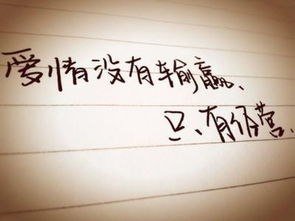 爱情没有输赢、
只有经营.